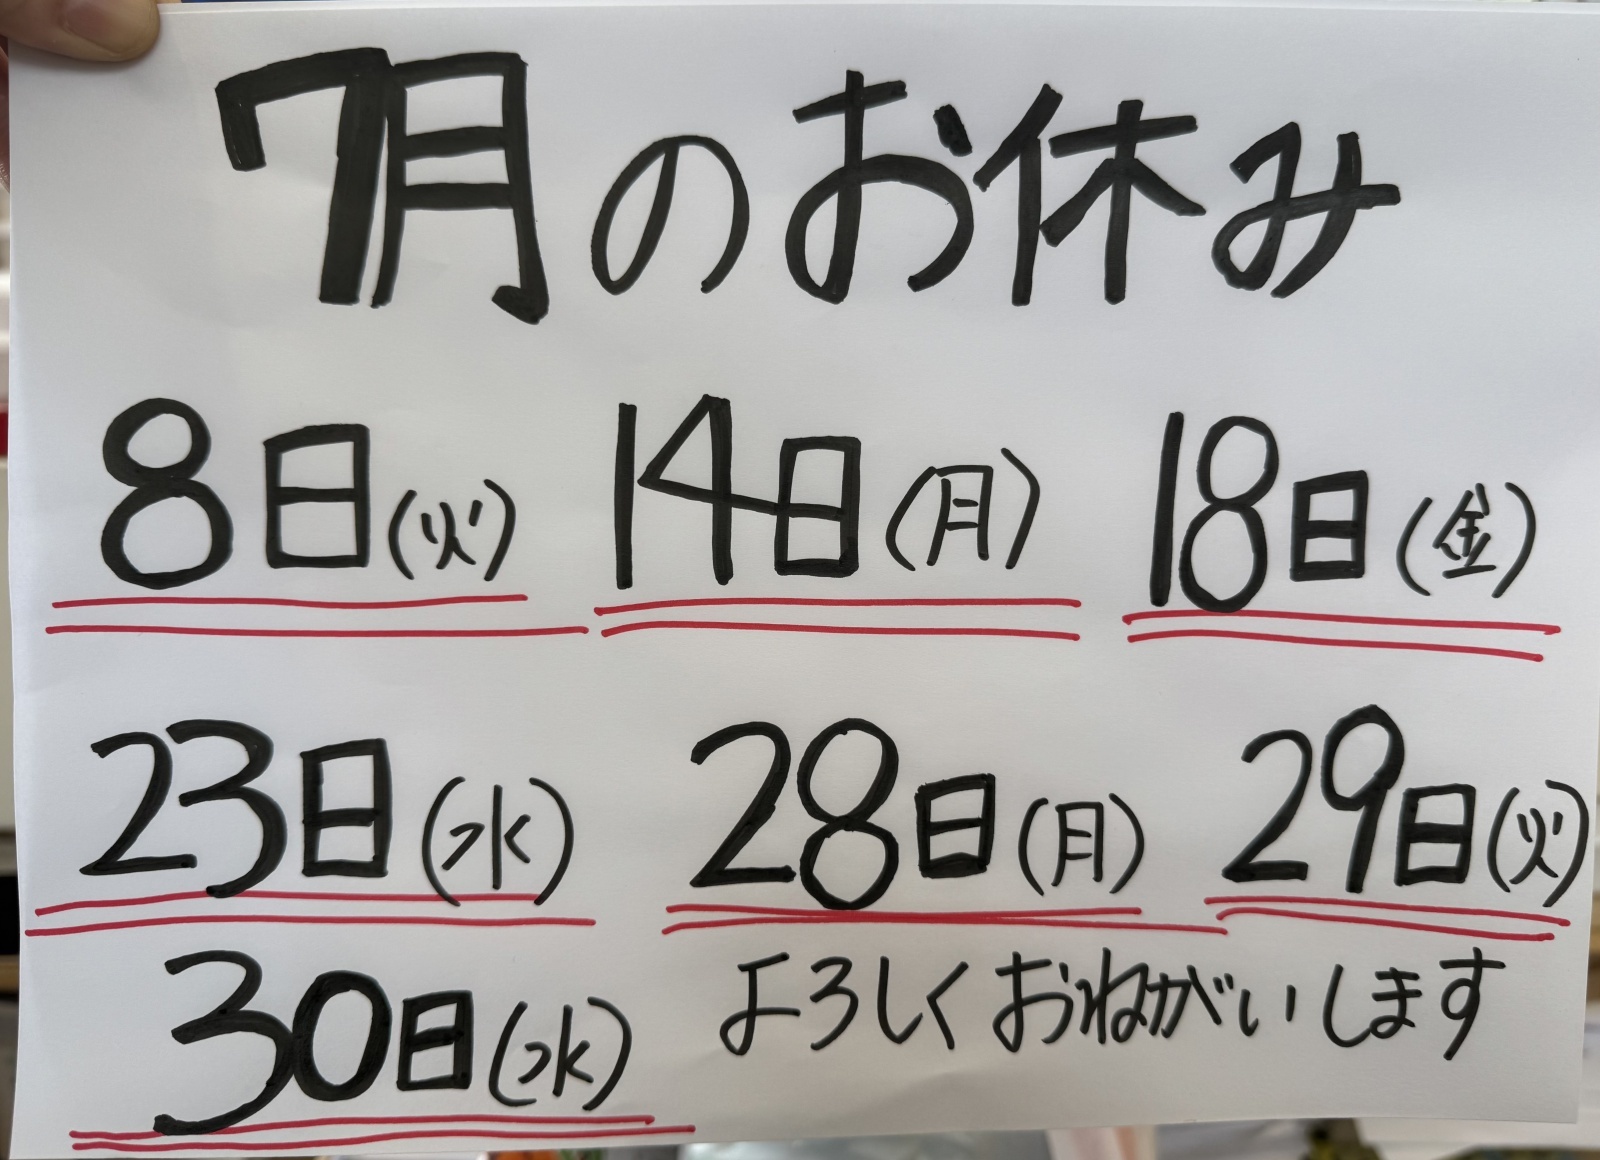 7月のお休み
8日(火) 14日(月) 18日(金)
23日(水) 28日(月) 29日(火)
30日(水) よろしくおねがいします